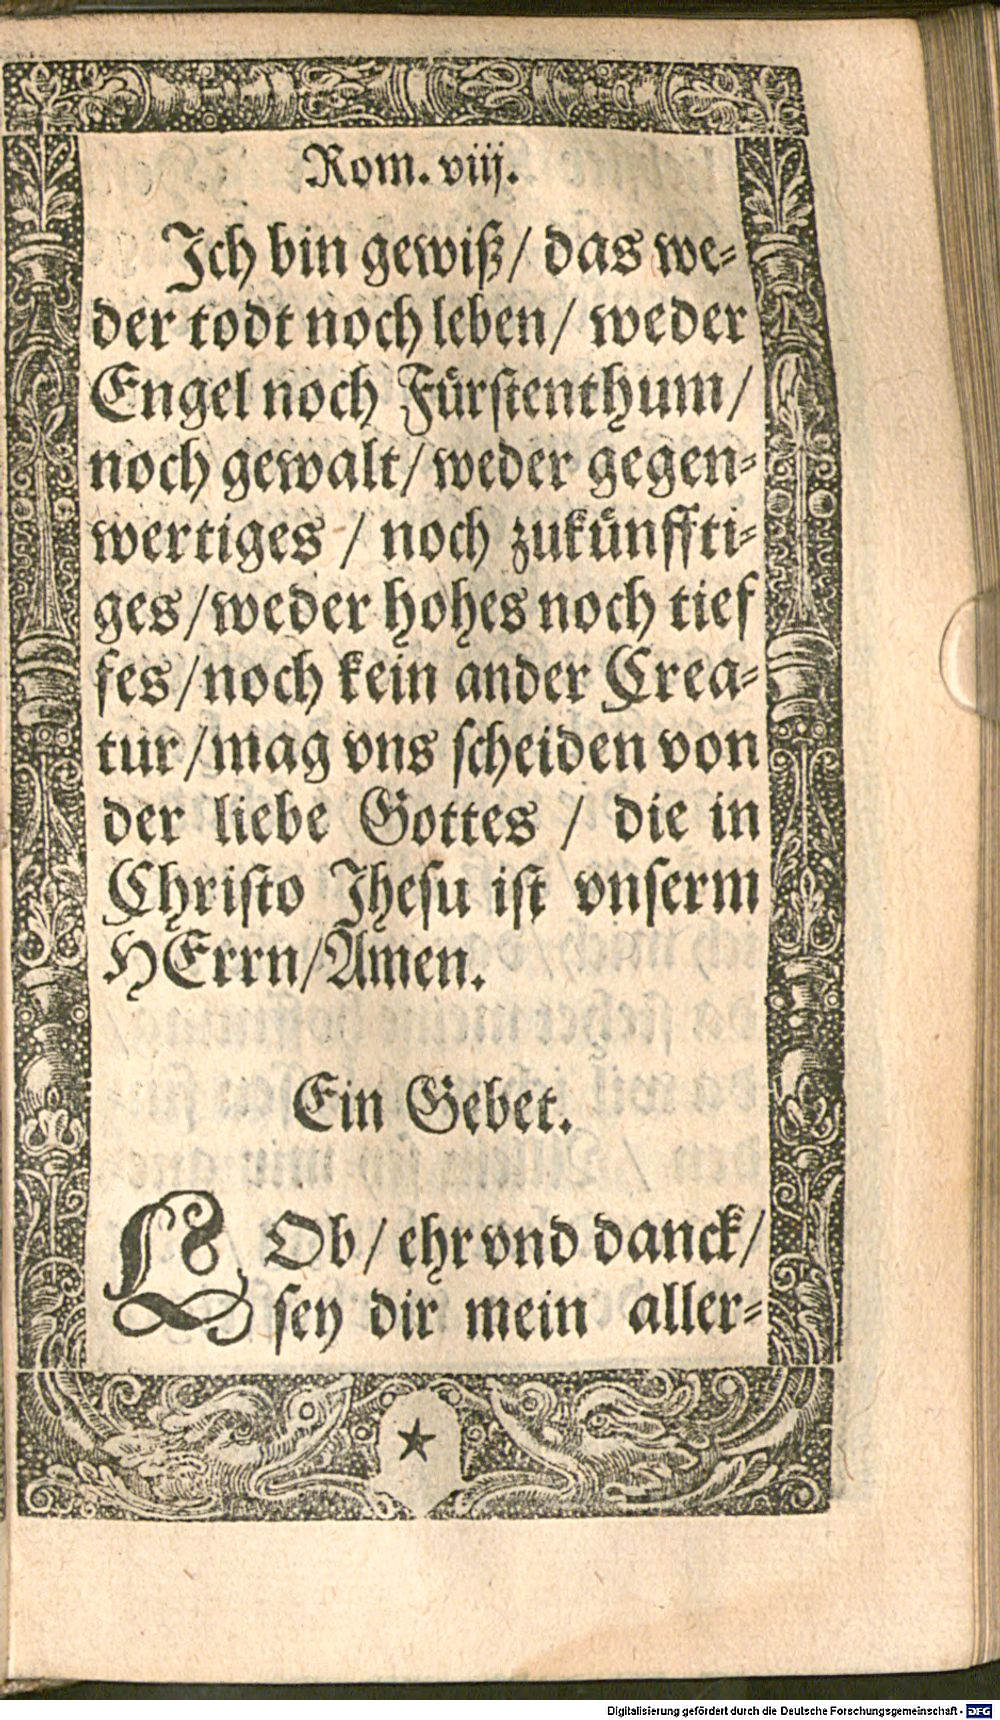 Rom. viij.
Ich bin gewiß / das we-
der todt noch leben / weder
Engel noch Fürstenthum /
noch gewalt / weder gegen-
wertiges / noch zukünffti-
ges / weder hohes noch tief
fes / noch kein ander Crea-
tur / mag vns scheiden von
der liebe Gottes / die in
Christo Jhesu ist vnserm
HErrn / Amen.
Ein Gebet.
LOb / ehr vnd danck /
sey dir mein aller-
Digitalisierung gefördert durch die Deutsche Forschungsgemeinschaft - DFG